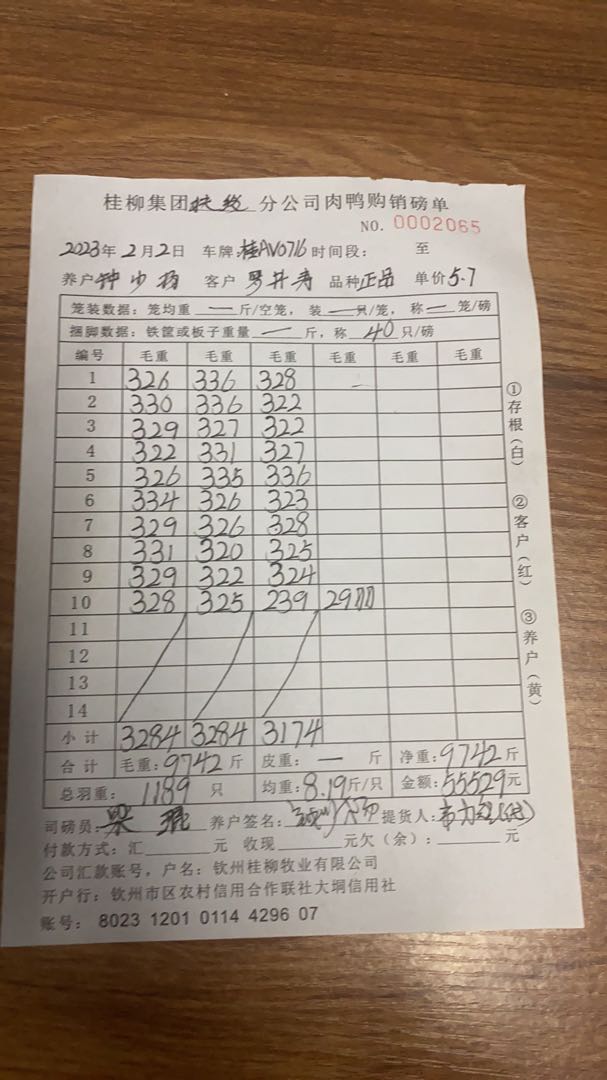 桂柳集团扶绥分公司肉鸭购销磅单
NO. 0002065
2023年2月2日 车牌:桂AV0716 时间段: 至
养户 钟少 客户 品种 正品 单价 5.7
笼装数据:笼均重 — 斤/空笼,装 — 只/笼,称 — 笼/磅
捆脚数据:铁筐或板子重量 — 斤,称 40 只/磅
编号 毛重 毛重 毛重 毛重 毛重 毛重
1 326 336 328
2 330 336 322
3 329 327 322
4 322 331 327
5 326 335 336
6 334 326 323
7 329 326 328
8 331 320 325
9 329 322 324
10 328 325 239 29
11
12
13
14
小计 3284 3284 3174
合计 毛重:9742斤 皮重:— 斤 净重:9742斤
总羽重: 1189 只 均重:8.19斤/只 金额:55529元
司磅员: 养户签名: 提货人:
付款方式:汇 元 收现 元欠(余): 元
公司汇款账号,户名:钦州桂柳牧业有限公司
开户行:钦州市区农村信用合作联社大垌信用社
账号: 8023 1201 0114 4296 07
①存根(白)
②客户(红)
③养户(黄)